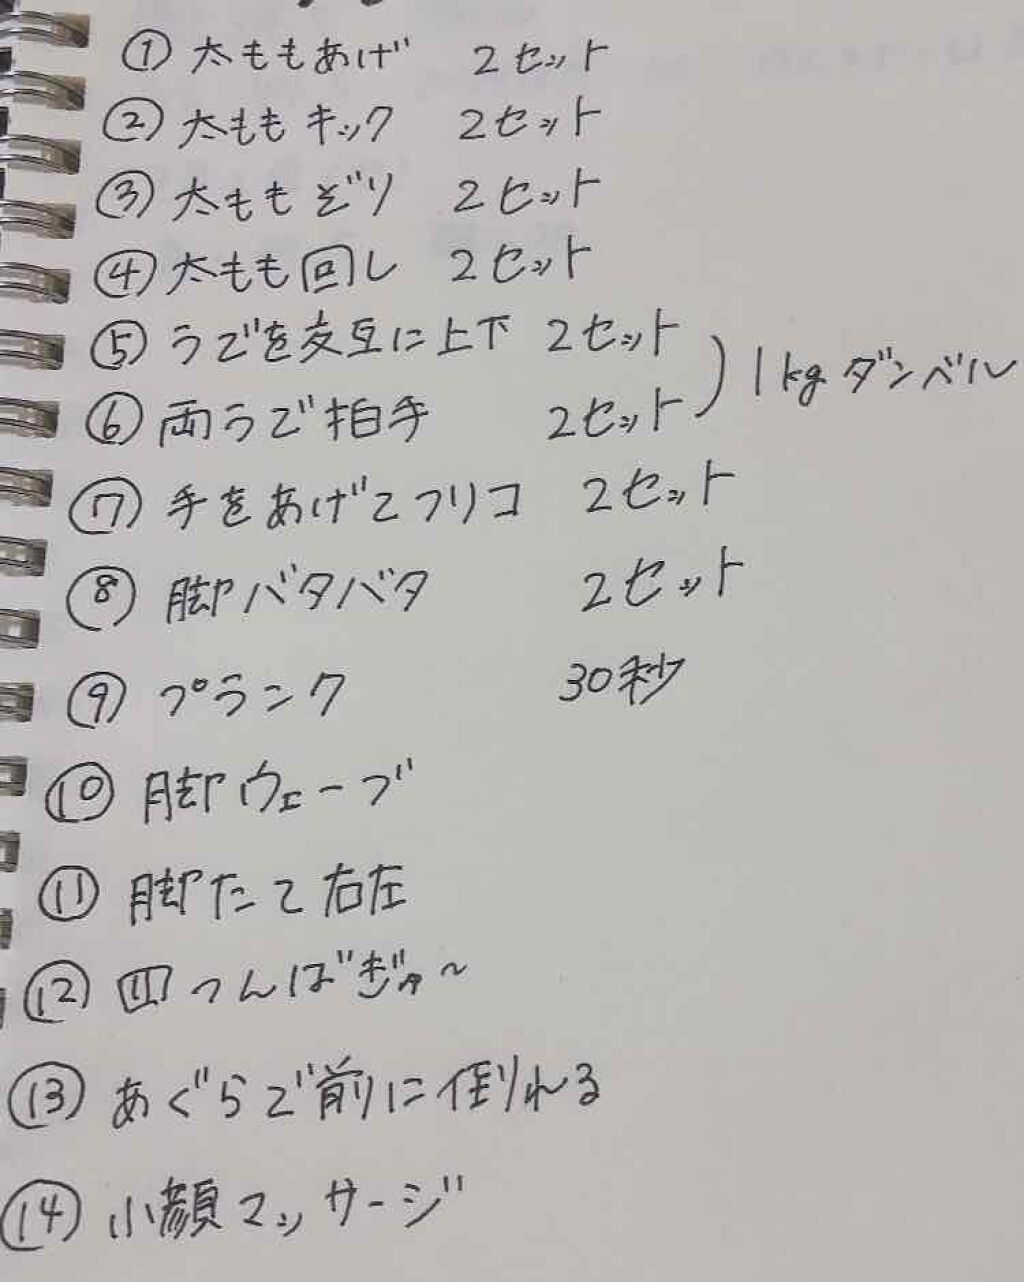 ① 太ももあげ 2セット
② 太ももキック 2セット
③ 太ももぞり 2セット
④ 太もも回し 2セット
⑤ うでを交互に上下 2セット
⑥ 両うで拍手 2セット
) 1kgダンベル
⑦ 手をあげてフリコ 2セット
⑧ 脚バタバタ 2セット
⑨ プランク 30秒
⑩ 脚ウェーブ
⑪ 脚たて右左
⑫ 四つんばぎゃ〜
⑬ あぐらで前に倒れる
⑭ 小顔マッサージ